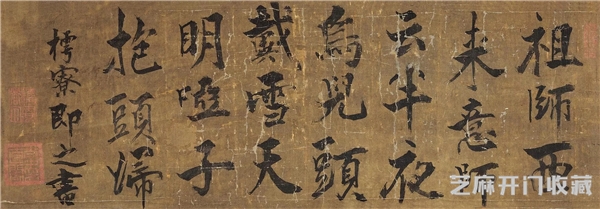 祖師西
来意師
云半夜
烏兒頭
戴雪天
明啞子
抱頭歸
樗寮即之書
芝麻开门收藏